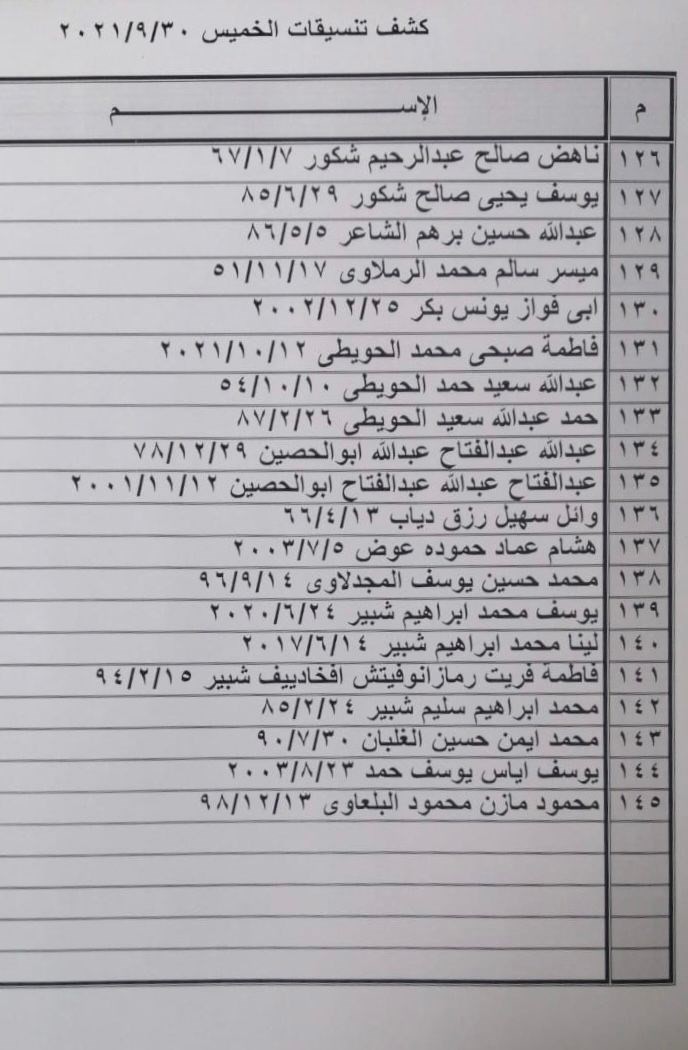 كشف تنسيقات الخميس ٢٠٢١/٩/٣٠
م الإســـــــــم
١٢٦ ناهض صالح عبدالرحيم شكور ٦٧/١/٧
١٢٧ يوسف يحيى صالح شكور ٨٥/٦/٢٩
١٢٨ عبدالله حسين برهم الشاعر ٨٦/٥/٥
١٢٩ ميسر سالم محمد الرملاوى ٥١/١١/١٧
١٣٠ ابى فواز يونس بكر ٢٠٠٢/١٢/٢٥
١٣١ فاطمة صبحى محمد الحويطى ٢٠٢١/١٠/١٢
١٣٢ عبدالله سعيد حمد الحويطى ٥٤/١٠/١٠
١٣٣ حمد عبدالله سعيد الحويطى ٨٧/٢/٢٦
١٣٤ عبدالله عبدالفتاح عبدالله ابوالحصين ٧٨/١٢/٢٩
١٣٥ عبدالفتاح عبدالله عبدالفتاح ابوالحصين ٢٠٠١/١١/١٢
١٣٦ وائل سهيل رزق دياب ٦٦/٤/١٣
١٣٧ هشام عماد حموده عوض ٢٠٠٣/٧/٥
١٣٨ محمد حسين يوسف المجدلاوى ٩٦/٩/١٤
١٣٩ يوسف محمد ابراهيم شبير ٢٠٢٠/٦/٢٤
١٤٠ لينا محمد ابراهيم شبير ٢٠١٧/٦/١٤
١٤١ فاطمة فريت رمازانوفيتش افخادييف شبير ٩٤/٢/١٥
١٤٢ محمد ابراهيم سليم شبير ٨٥/٢/٢٤
١٤٣ محمد ايمن حسين الغلبان ٩٠/٧/٣٠
١٤٤ يوسف اياس يوسف حمد ٢٠٠٣/٨/٢٣
١٤٥ محمود مازن محمود البلعاوى ٩٨/١٢/١٣